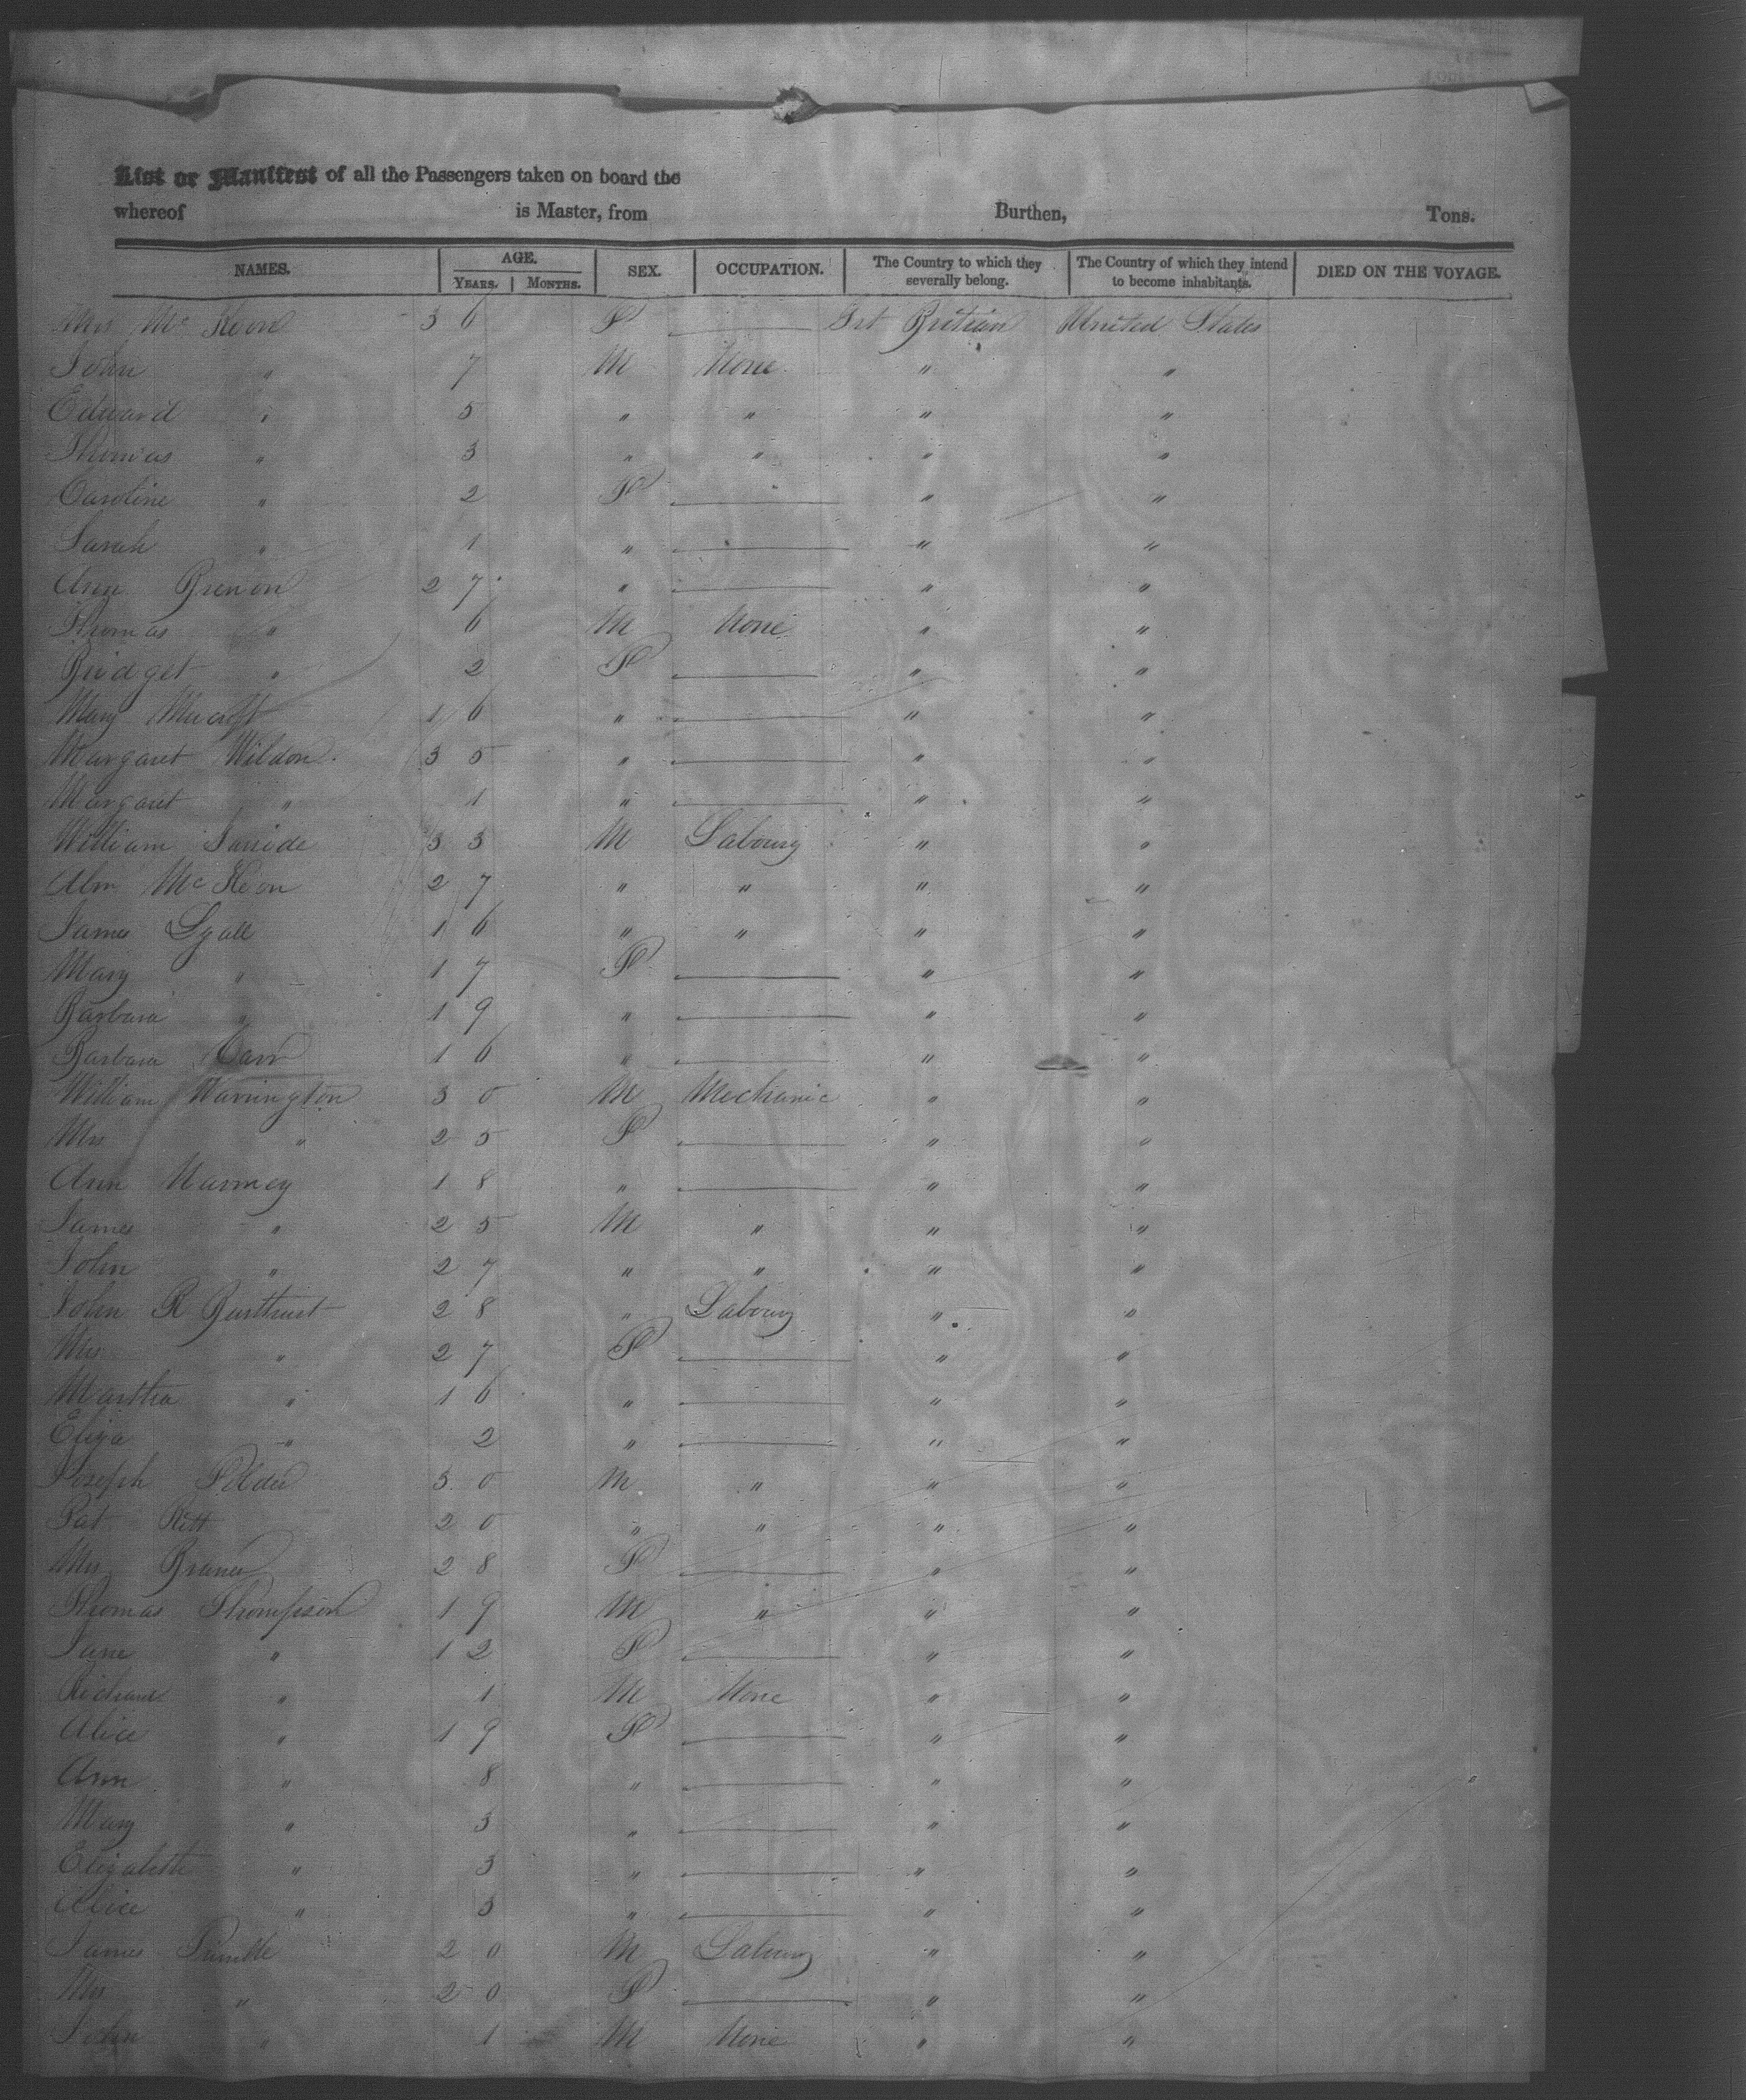 List or Manifest of all the Passengers taken on board the
whereof is Master, from Burthen, Tons.
NAMES. AGE. YEARS. MONTHS. SEX. OCCUPATION. The Country to which they severally belong. The Country of which they intend to become inhabitants. DIED ON THE VOYAGE.
Mrs McKeon 36 F — Grt Britian United States
John " 7 M None " "
Edward " 5 " " " "
Thomas " 3 " " " "
Caroline " 2 F — " "
Sarah " 1 " — " "
Ann 27 " — " "
Thomas " 6 M None " "
Bridget " 2 F — " "
Mary 16 " — " "
Margaret Wildon 35 " — " "
Margaret " 1 " — " "
William 33 M Labourg " "
McKeon 27 " " " "
James Lyall 16 " " " "
Mary " 17 F — " "
Barbara " 19 " — " "
Barbara Carr 16 " — " "
William Warrington 30 M Mechanic " "
Mrs " 25 F — " "
Ann 18 " — " "
James " 25 M " " "
John " 27 " " " "
John R 28 " Labourg " "
Mrs " 27 F — " "
Martha " 16 " — " "
Eliza " 2 " — " "
Joseph 30 M " " "
Pat 20 " " " "
Mrs 28 F — " "
Thomas Thompson 19 M " " "
Jane " 12 F — " "
Richard " 1 M None " "
Alice " 19 F — " "
Ann " 8 " — " "
Mary " 3 " — " "
Elizabeth " 3 " — " "
Alice " 3 " — " "
James 20 M Labourg " "
Mrs " 20 F — " "
John " 1 M None " "